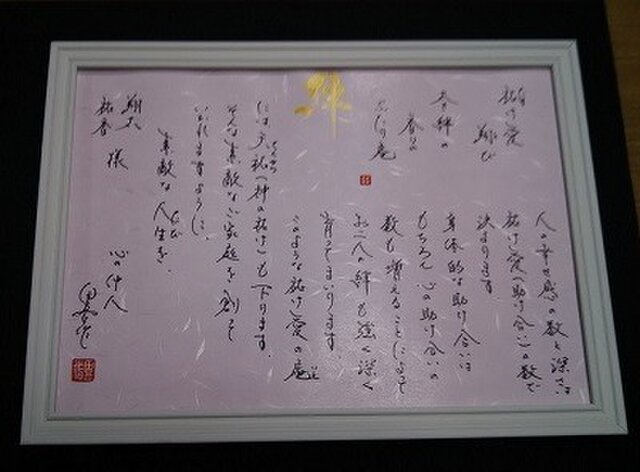 絆
祐け愛
翔び
絆の
庵
人の幸せ感の数と深さは
祐け愛(助け合い)の数で
決まります
身体的な助け合いは
もちろん 心の助け合いの
数も増えることによって
お二人の絆も強く深く
育ってまいります。
このような祐け愛の庵
には天祐(神の祐け)も下ります。
そんな素敵なご家庭を創って
いかれますように。
素敵な人生を。
翔太
祐香 様
心の仲人